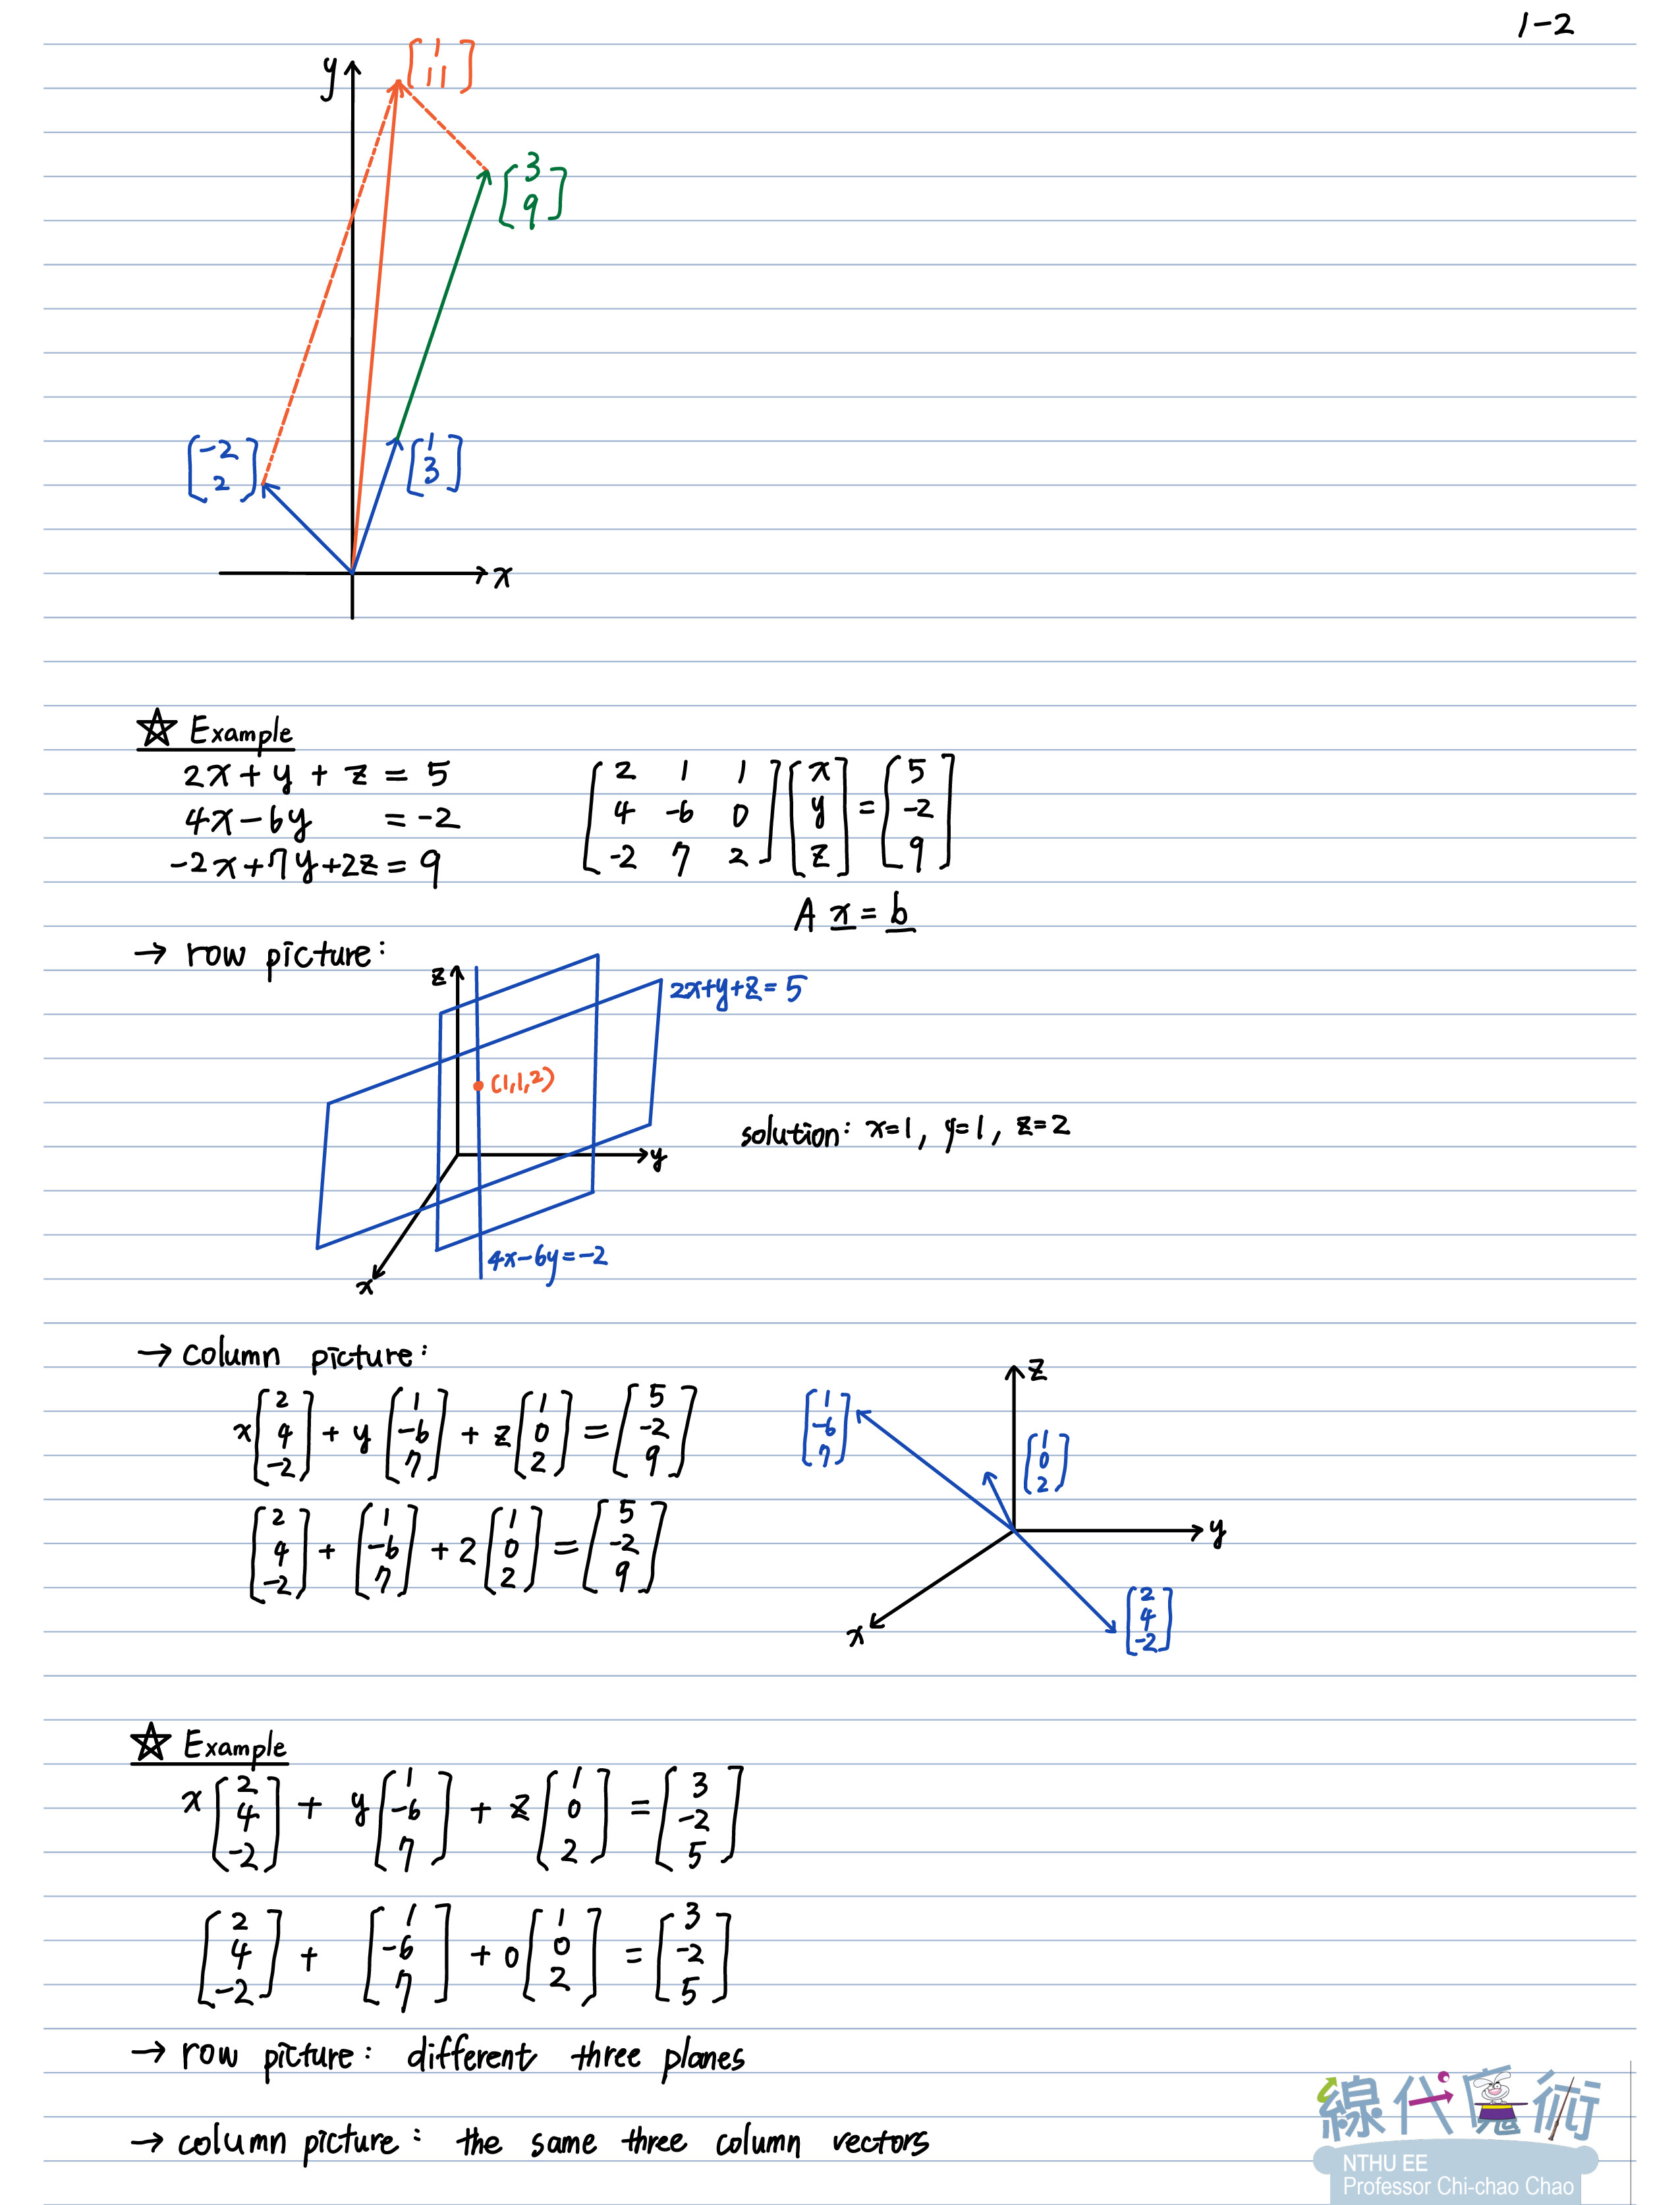 1-2
y
[1
11]
[3
9]
[-2
2]
[1
3]
x
☆ Example
2x + y + z = 5
4x - 6y = -2
-2x + 7y + 2z = 9
[2 1 1
4 -6 0
-2 7 2] [x
y
z] = [5
-2
9]
A x = b
→ row picture:
z
2x+y+z=5
(1,1,2)
y
4x-6y=-2
x
solution: x=1, y=1, z=2
→ column picture:
x [2 4 -2] + y [1 -6 7] + z [1 0 2] = [5 -2 9]
[2 4 -2] + [1 -6 7] + 2 [1 0 2] = [5 -2 9]
z
[1
-6
7]
[1
0
2]
y
x
[2
4
-2]
☆ Example
x [2 4 -2] + y [1 -6 7] + z [1 0 2] = [3 -2 5]
[2 4 -2] + [1 -6 7] + 0 [1 0 2] = [3 -2 5]
→ row picture: different three planes
→ column picture: the same three column vectors
線代魔術
NTHU EE
Professor Chi-chao Chao